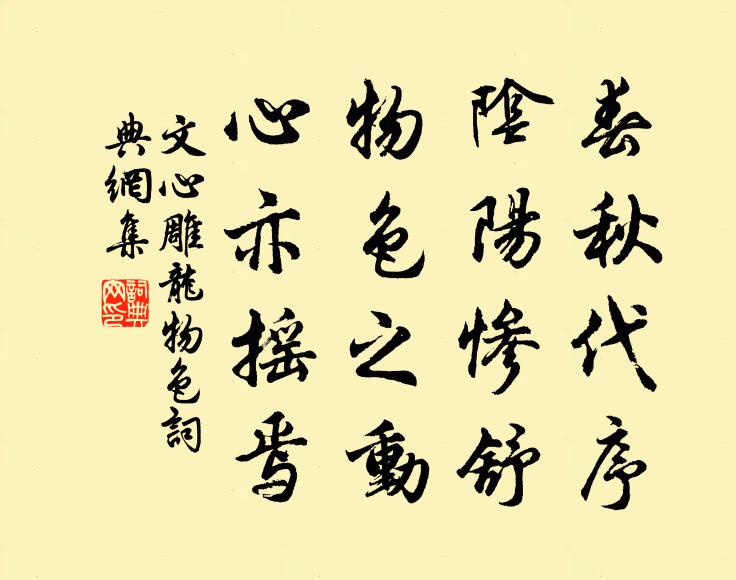 春秋代序
陰陽慘舒
物色之動
心亦摇焉
文心雕龍物色詞
典網集
詞典
网印